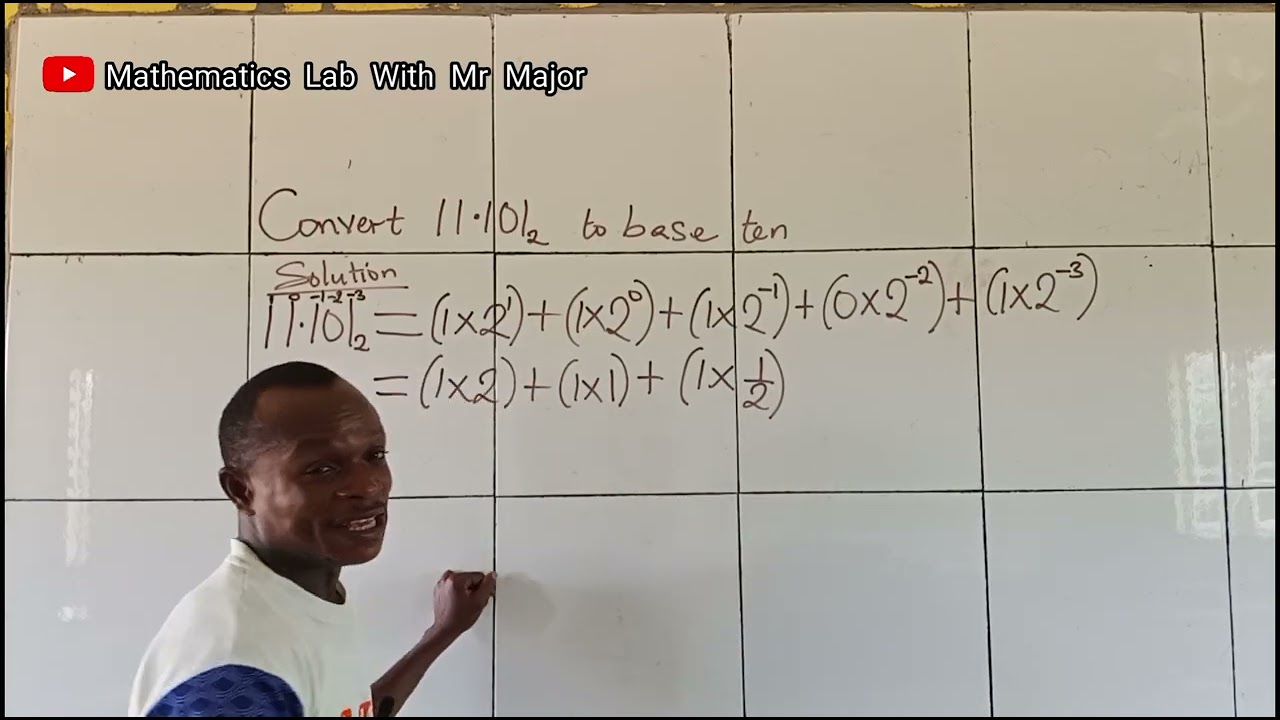 Mathematics Lab With Mr Major
Convert 11.101₂ to base ten
Solution
1 0 -1 -2 -3
11.101₂ = (1×2¹)+(1×2⁰)+(1×2⁻¹)+(0×2⁻²)+(1×2⁻³)
= (1×2)+(1×1)+(1×1/2)